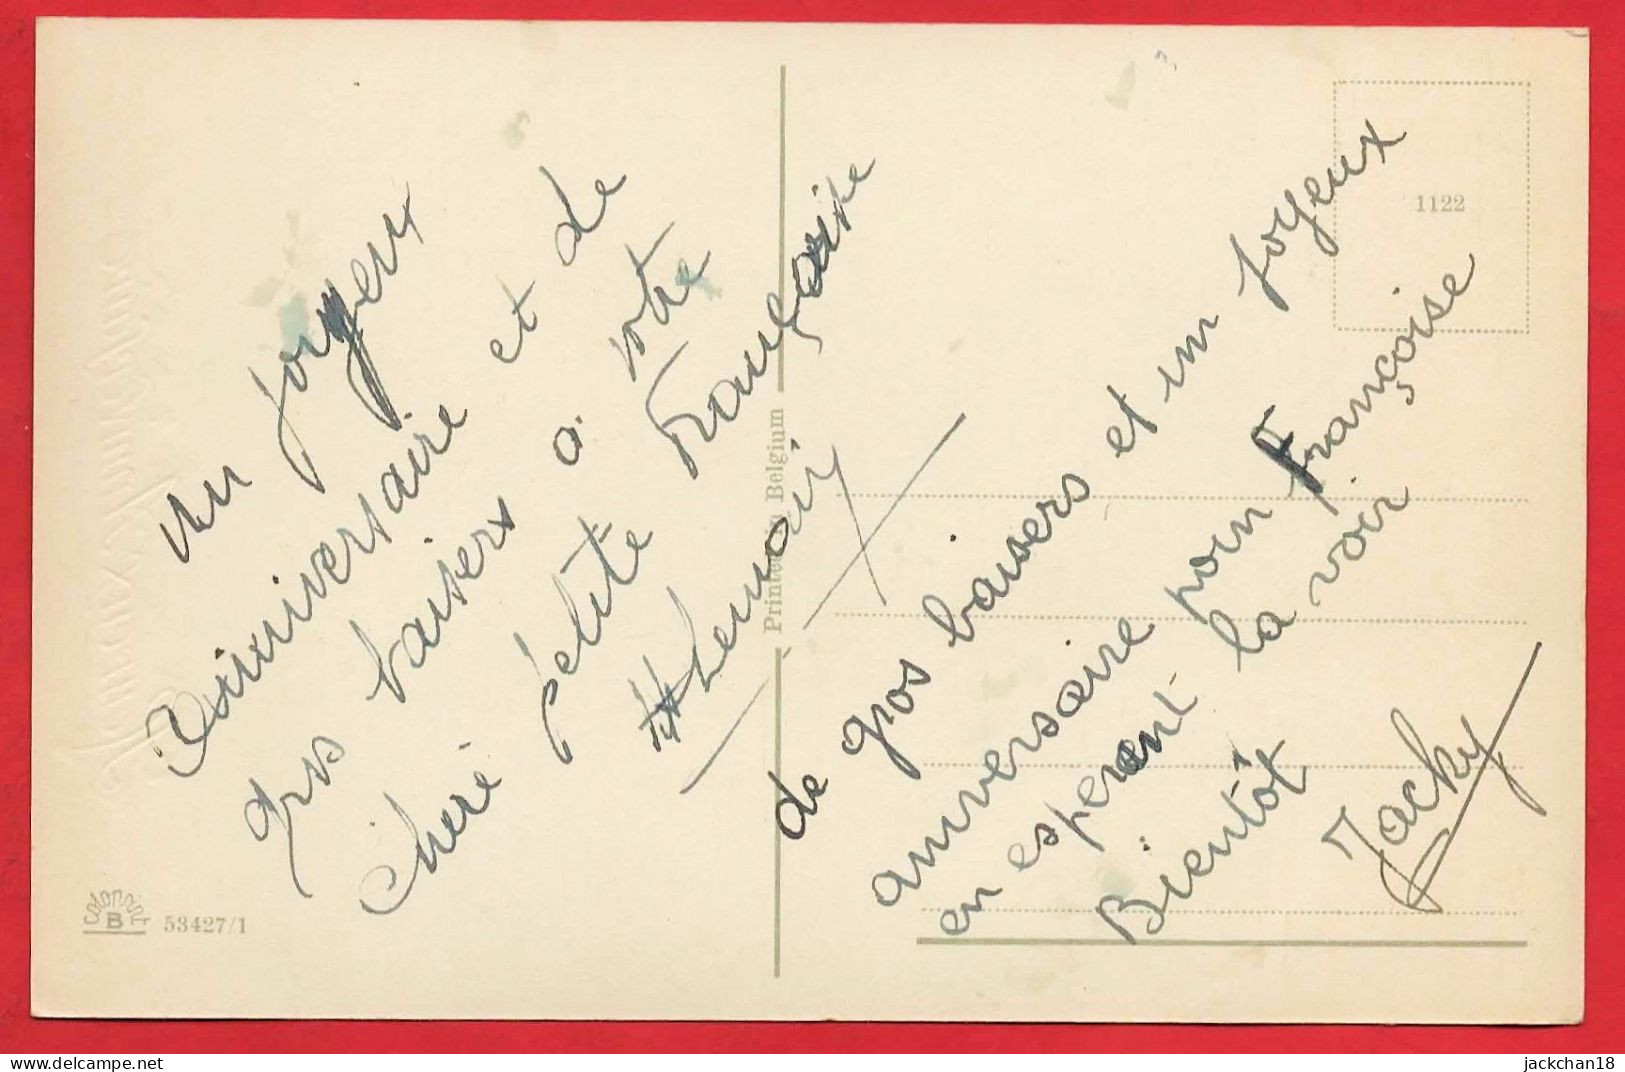 un joyeux
Anniversaire et de
gros baisers a votre
cheré petite Françoise
de gros baisers et un joyeux
anniversaire pour Françoise
en esperent la voir
Bientôt
Jacky
Printed in Belgium
1122
colorprint
B
53427/1
jackchan18